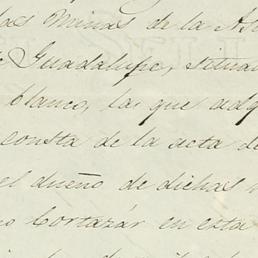 las Minas de la
Guadalupe, situa
blanco, las que adq
consta de la acta de
el dueño de dichas
Cortazár en esta